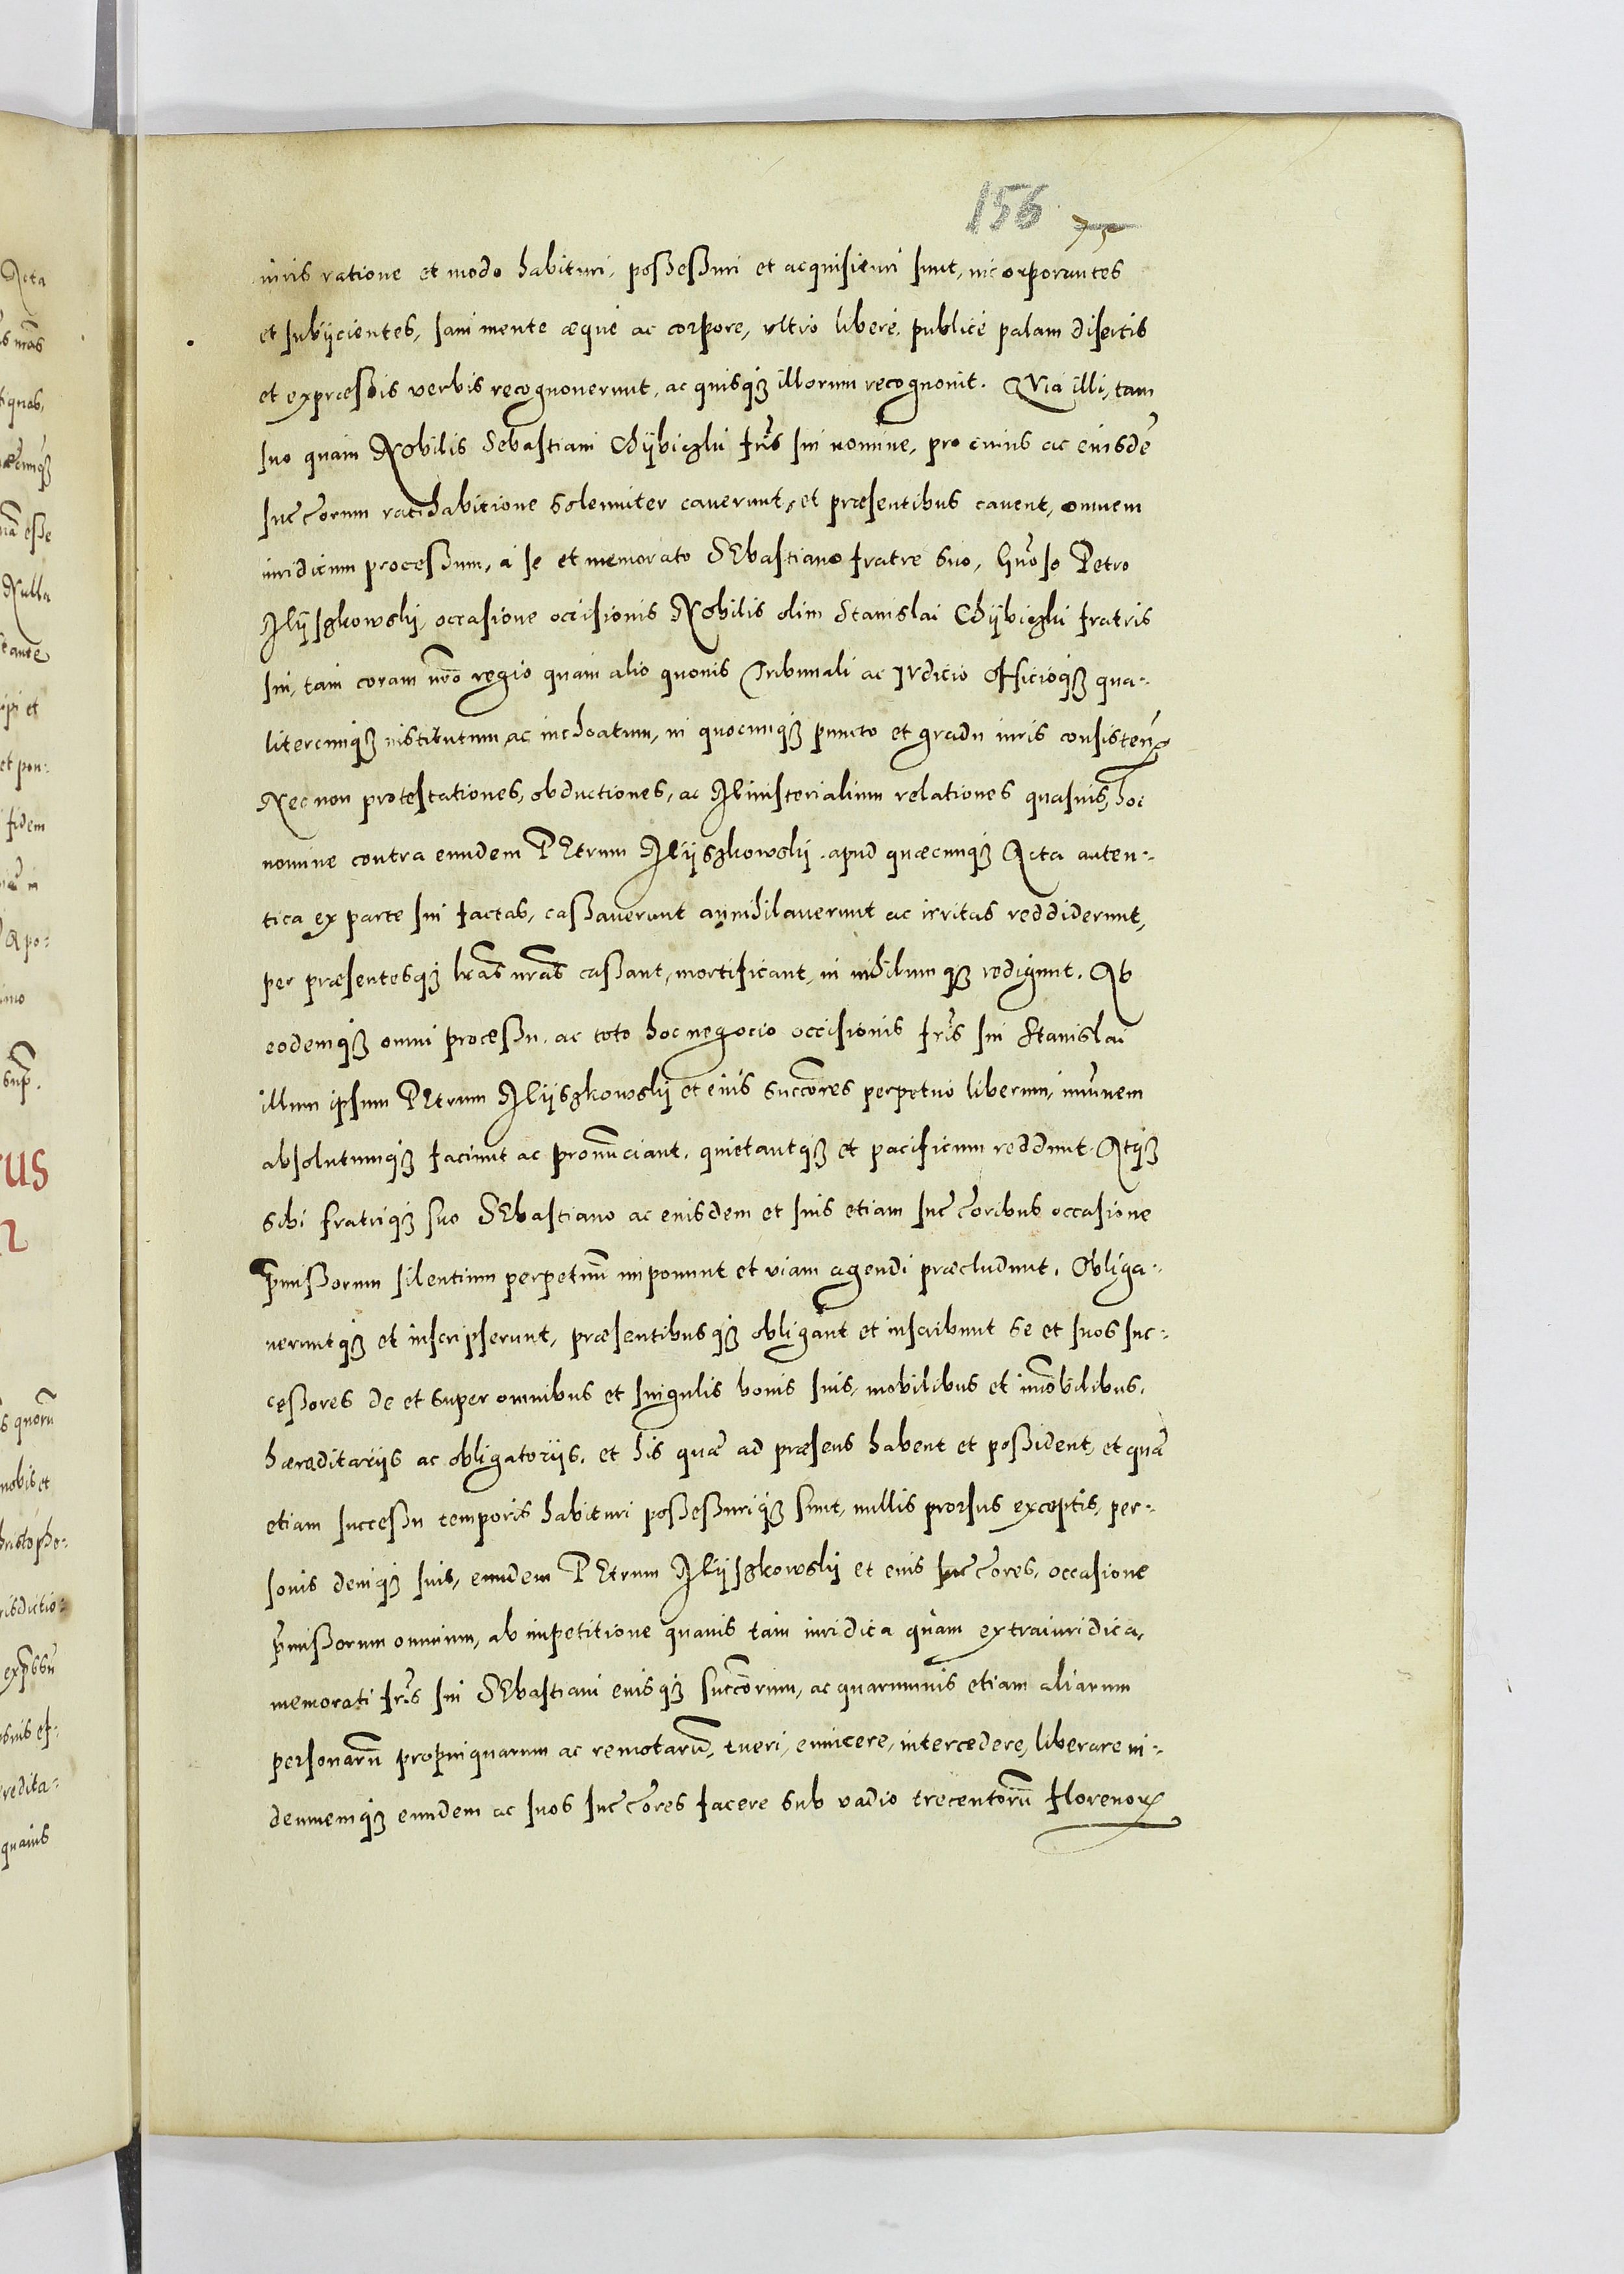 156 75
iuris ratione et modo habituri, possessuri et acquisituri sunt, incorporantes
et subijcientes, sani mente æque ac corpore, ultro libere, publice palam disertis
et expræssis verbis recognoverunt, ac quisq3 illorum recognouit. Quia illi, tam
suo quam Nobilis Sebastiani Chijbiczki frīs sui nomine, pro cuius ac eiusdē
succ̄orum ratihabitione solemniter caverunt, et præsentibus cavent, omnem
iuridicum processum, a se et memorato Sebastiano fratre suo, Gn̄oso Petro
Mijszkowskij, occasione occisionis Nobilis olim Stanislai Chijbiczki fratris
sui, tam coram nr̄o regio quam alio quouis Tribunali ac Iudicio Officioq3 qua-
litercunq3 institutum ac inchoatum, in quocunq3 puncto et gradu iuris consisteñ.
Nec non protestationes, obductiones, ac Ministerialium relationes quasuis, hoc
nomine contra eundem Petrum Mijszkowskij, apud quæcunq3 Acta auten-
tica ex parte sui factas, cassaverunt annihilaverunt ac irritas reddiderunt,
per præsentesq3 lr̄as nr̄as cassant, mortificant, in nihilumq3 redigunt. Ab
eodemq3 omni processu, ac toto hoc negocio occisionis frīs sui Stanislai
illum ipsum Petrum Mijszkowskij et eius succ̄ores perpetuo liberum, im̄unem
absolutumq3 faciunt ac pronun̄ciant, quietantq3 et pacificum reddunt. Atq3
sibi fratriq3 suo Sebastiano ac eiusdem et suis etiam succ̄oribus occasione
p̄missorum silentium perpetuū imponunt et viam agendi præcludunt. Obliga-
veruntq3 et inscripserunt, præsentibusq3 obligant et inscribunt se et suos suc-
cessores de et super omnibus et singulis bonis suis, mobilibus et im̄obilibus,
hæreditarijs ac obligatorijs, et his quæ ad præsens habent et possident, et quæ
etiam successu temporis habituri possessuriq3 sunt, nullis prorsus exceptis, per-
sonis deniq3 suis, eundem Petrum Mijszkowskij et eius succ̄ores, occasione
p̄missorum omnium, ab impetitione quauis tam iuridica quàm extraiuridica,
memorati frīs sui Sebastiani eiusq3 succ̄orum, ac quarumuis etiam aliarum
personarū propinquarum ac remotarū, tueri, euincere, intercedere, liberare in-
demnemq3 eundem ac suos succ̄ores facere sub vadio trecentorū florenorꝝ